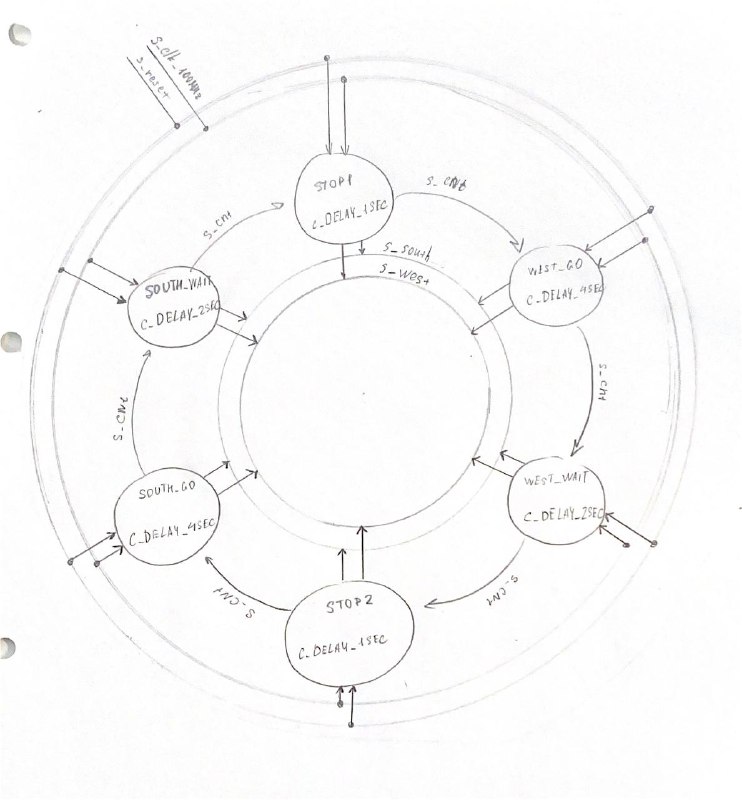 S_clk_100MHz
s_reset
STOP1
C_DELAY_1SEC
S_CNt
S_South
S_West
WEST_GO
C_DELAY_4SEC
S_CNt
WEST_WAIT
C_DELAY_2SEC
S_CNt
STOP2
C_DELAY_1SEC
S_CNt
SOUTH_GO
C_DELAY_4SEC
S_CNt
SOUTH_WAIT
C_DELAY_2SEC
S_CNt